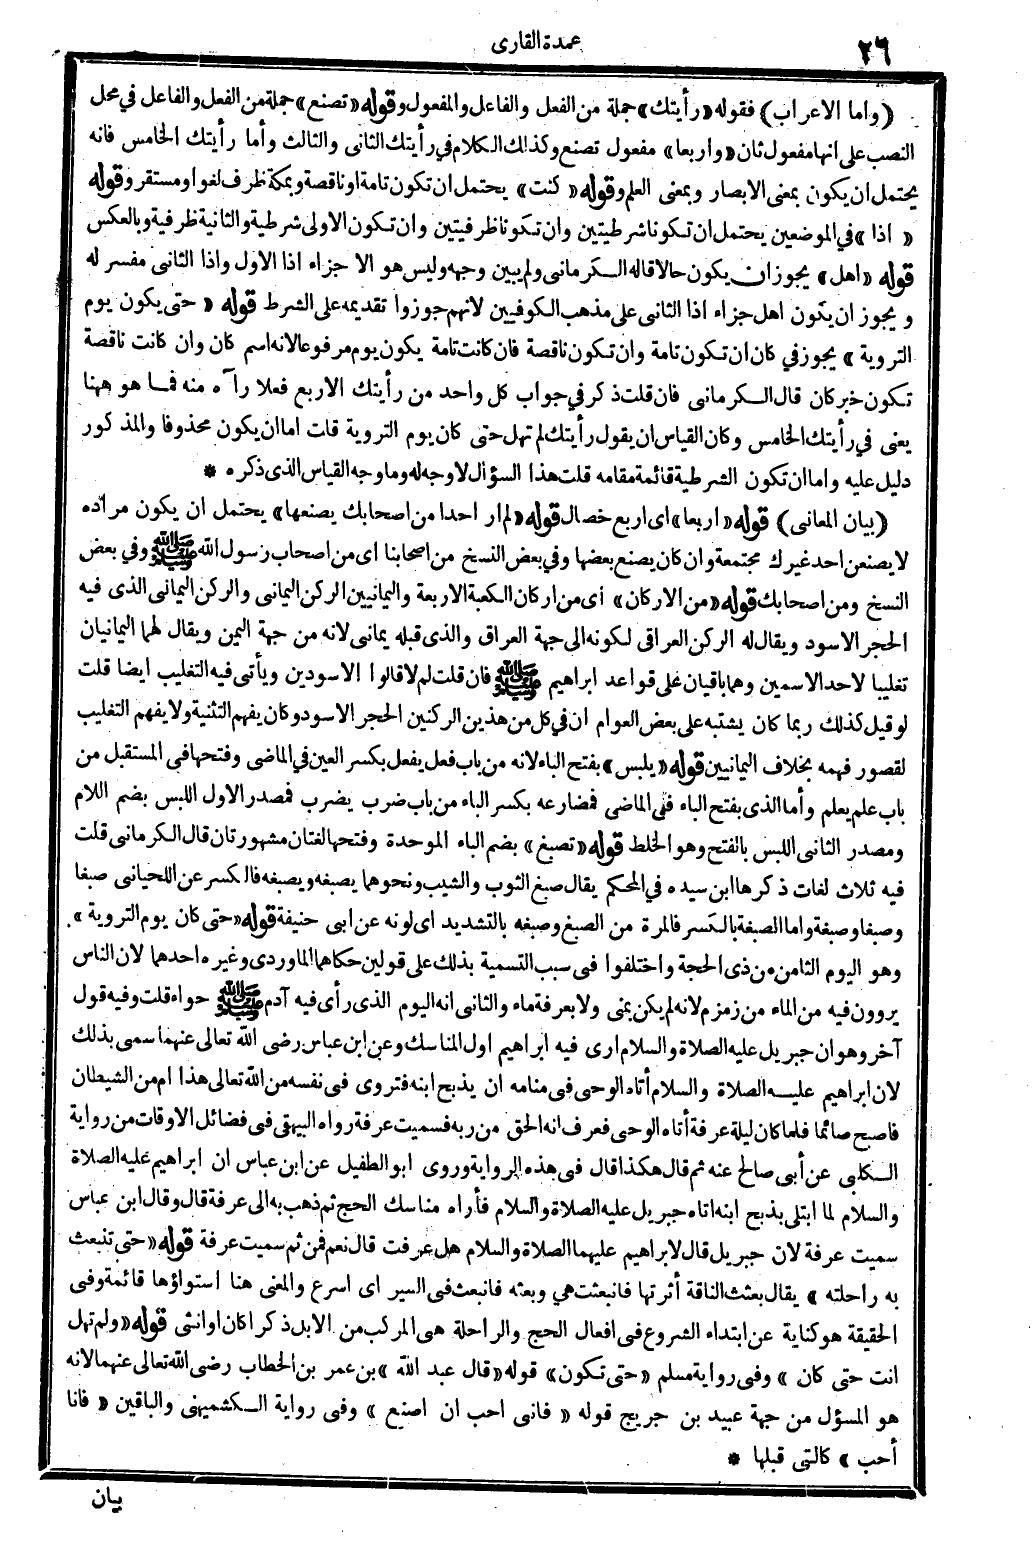 ٢٦
عمدة القارى
(واما الاعراب) فقوله «رأيتك» جملة من الفعل والفاعل والمفعول وقوله «تصنع» جملة من الفعل والفاعل في محل
النصب على انها مفعول ثان «واربعا» مفعول تصنع وكذلك الكلام في رأيتك الثانى والثالث وأما رأيتك الخامس فانه
يحتمل ان يكون بمعنى الابصار وبمعنى العلم وقوله «كنت» يحتمل ان تكون تامة او ناقصة وبمكة ظرف لغو او مستقر وقوله
«اذا» في الموضعين يحتمل ان تكونا شرطيتين وان تكونا ظرفيتين وان تكون الاولى شرطية والثانية ظرفية وبالعكس
قوله «اهل» يجوز ان يكون حالا قاله الكرمانى ولم يبين وجهه وليس هو الا جزاء اذا الاول واذا الثانى مفسر له
ويجوز ان يكون اهل جزاء اذا الثانى على مذهب الكوفيين لانهم جوزوا تقديمه على الشرط قوله «حتى يكون يوم
التروية» يجوز في كان ان تكون تامة وان تكون ناقصة فان كانت تامة يكون يوم مرفوعا لانه اسم كان وان كانت ناقصة
تكون خبر كان قال الكرمانى فان قلت ذكر في جواب كل واحد من رأيتك الاربع فعلا رآه منه فما هو ههنا
يعنى في رأيتك الخامس وكان القياس ان يقول رأيتك لم تهل حتى كان يوم التروية قلت اما ان يكون محذوفا والمذكور
دليل عليه واما ان تكون الشرطية قائمة مقامه قلت هذا السؤال لاوجه له وما وجه القياس الذى ذكره *
(بيان المعانى) قوله «اربعا» اى اربع خصال قوله «لم ار احدا من اصحابك يصنعها» يحتمل ان يكون مراده
لا يصنعن احد غيرك مجتمعة وان كان يصنع بعضها وفي بعض النسخ من اصحابنا اى من اصحاب رسول الله ﷺ وفي بعض
النسخ ومن اصحابك قوله «من الاركان» أى من اركان الكعبة الاربعة واليمانيين الركن اليمانى والركن اليمانى الذى فيه
الحجر الاسود ويقال له الركن العراقى لكونه الى جهة العراق والذى قبله يمانى لانه من جهة اليمن ويقال لهما اليمانيان
تغليبا لاحد الاسمين وهما باقيان على قواعد ابراهيم ﷺ فان قلت لم لا قالوا الاسودين ويأتى فيه التغليب ايضا قلت
لو قيل كذلك ربما كان يشتبه على بعض العوام ان في كل من هذين الركنين الحجر الاسود وكان يفهم التثنية ولا يفهم التغليب
لقصور فهمه بخلاف اليمانيين قوله «يلبس» بفتح الباء لانه من باب فعل يفعل بكسر العين في الماضى وفتحها فى المستقبل من
باب علم يعلم وأما الذى بفتح الباء فى الماضى فمضارعه بكسر الباء من باب ضرب يضرب فمصدر الاول اللبس بضم اللام
ومصدر الثانى اللبس بالفتح وهو الخلط قوله «تصبغ» بضم الباء الموحدة وفتحها لغتان مشهورتان قال الكرمانى قلت
فيه ثلاث لغات ذكرها ابن سيده في المحكم يقال صبغ الثوب والشيب ونحوهما يصبغه ويصبغه فالكسر عن اللحيانى صبغا
وصبغا وصبغة واما الصبغة بالكسر فالمرة من الصبغ وصبغه بالتشديد اى لونه عن ابى حنيفة قوله «حتى كان يوم التروية»
وهو اليوم الثامن من ذى الحجة واختلفوا فى سبب التسمية بذلك على قولين حكاهما الماوردى وغيره احدهما لان الناس
يروون فيه من الماء من زمزم لانه لم يكن بمنى ولا بعرفة ماء والثانى انه اليوم الذى رأى فيه آدم ﷺ حواء قلت وفيه قول
آخر وهو ان جبريل عليه الصلاة والسلام ارى فيه ابراهيم اول المناسك وعن ابن عباس رضى الله تعالى عنهما سمى بذلك
لان ابراهيم عليه الصلاة والسلام أتاه الوحى فى منامه ان يذبح ابنه فتروى فى نفسه من الله تعالى هذا ام من الشيطان
فاصبح صائما فلما كان ليلة عرفة أتاه الوحى فعرف انه الحق من ربه فسميت عرفة رواه البيهقى فى فضائل الاوقات من رواية
الكلبى عن أبى صالح عنه ثم قال هكذا قال فى هذه الرواية وروى ابو الطفيل عن ابن عباس ان ابراهيم عليه الصلاة
والسلام لما ابتلى بذبح ابنه اتاه جبريل عليه الصلاة والسلام فأراه مناسك الحج ثم ذهب به الى عرفة قال وقال ابن عباس
سميت عرفة لان جبريل قال لابراهيم عليهما الصلاة والسلام هل عرفت قال نعم فمن ثم سميت عرفة قوله «حتى تنبعث
به راحلته» يقال بعثت الناقة أثرتها فانبعثت هي وبعثه فانبعث فى السير اى اسرع والمعنى هنا استواؤها قائمة وفى
الحقيقة هو كناية عن ابتداء الشروع فى افعال الحج والراحلة هى المركب من الابل ذكرا كان او انثى قوله «ولم تهل
انت حتى كان» وفى رواية مسلم «حتى تكون» قوله «قال عبد الله» بن عمر بن الخطاب رضى الله تعالى عنهما لانه
هو المسؤل من جهة عبيد بن جريج قوله «فانى احب ان اصنع» وفى رواية الكشميهنى والباقين «فانا
أحب» كالتى قبلها *
بيان